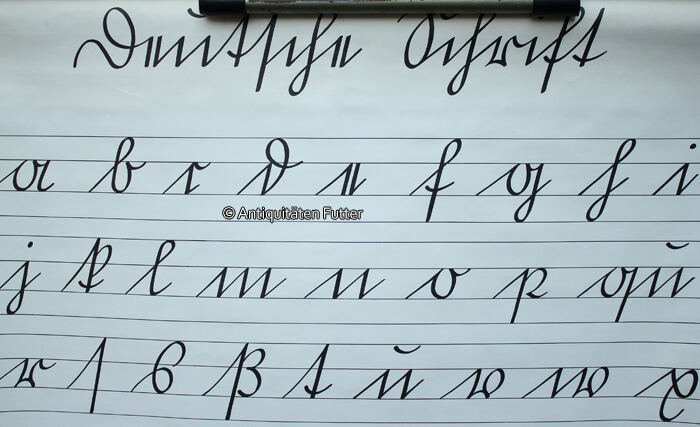 Deutsche Schrift
a b c d e f g h i
© Antiquitäten Futter
j k l m n o p qu
r ſ s ß t u v w x